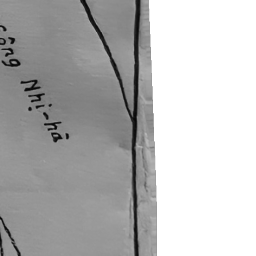 công Nhị-hà